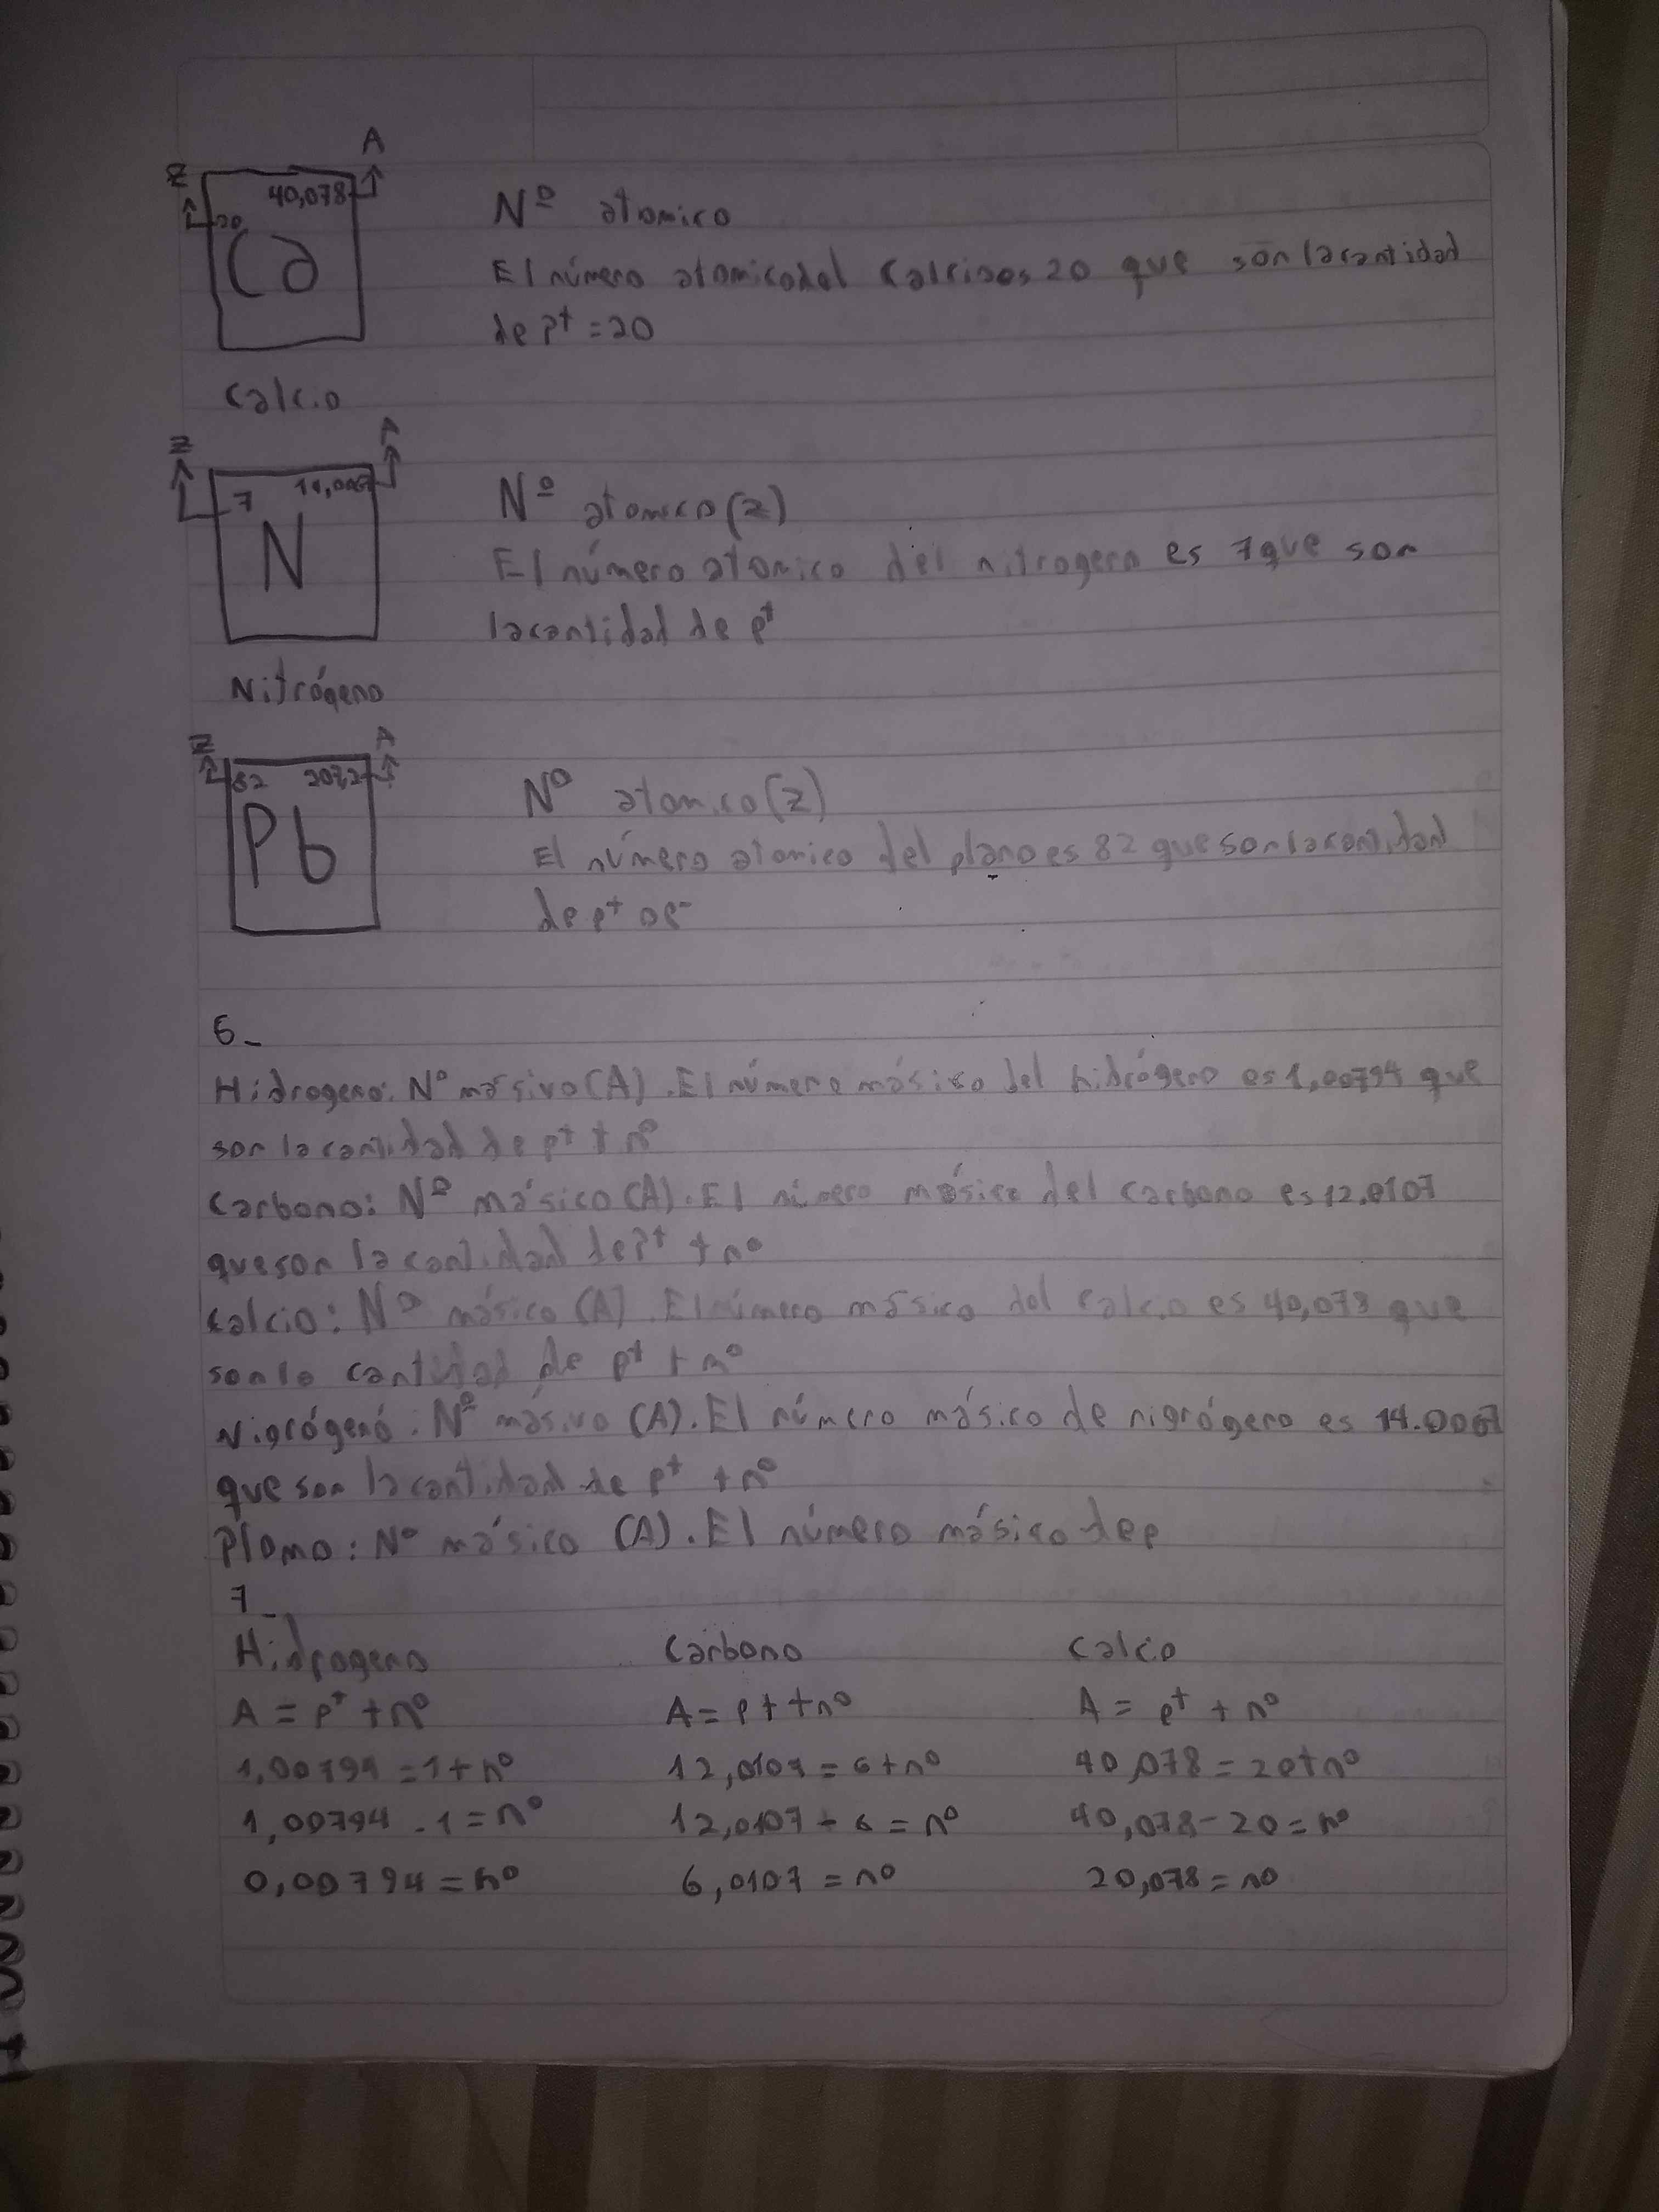 Z A
40,078
20
Ca
Calcio
Nº atomico
El número atomico del Calcio es 20 que son la cantidad
de p+ = 20
Z A
7 14,0067
N
Nitrógeno
Nº atomico (z)
El número atomico del nitrogeno es 7 que son
la cantidad de p+
Z A
82 207,2
Pb
Nº atomico (z)
El número atomico del plomo es 82 que son la cantidad
de p+ o e-
6_
Hidrogeno: Nº másivo (A). El número másico del hidrógeno es 1,00794 que
son la cantidad de p+ + nº
Carbono: Nº másico (A). El número másico del carbono es 12.0107
que son la cantidad de p+ + nº
Calcio: Nº másico (A). El número másico del calcio es 40,078 que
son la cantidad de p+ + nº
Nigrógenó: Nº másivo (A). El número másico de nigrógeno es 14.0067
que son la cantidad de p+ + nº
Plomo: Nº másico (A). El número másico de p
7_
Hidrogeno Carbono Calcio
A = p+ + nº A = p+ + nº A = p+ + nº
1,00794 = 1 + nº 12,0107 = 6 + nº 40,078 = 20 + nº
1,00794 - 1 = nº 12,0107 - 6 = nº 40,078 - 20 = nº
0,00794 = nº 6,0107 = nº 20,078 = nº